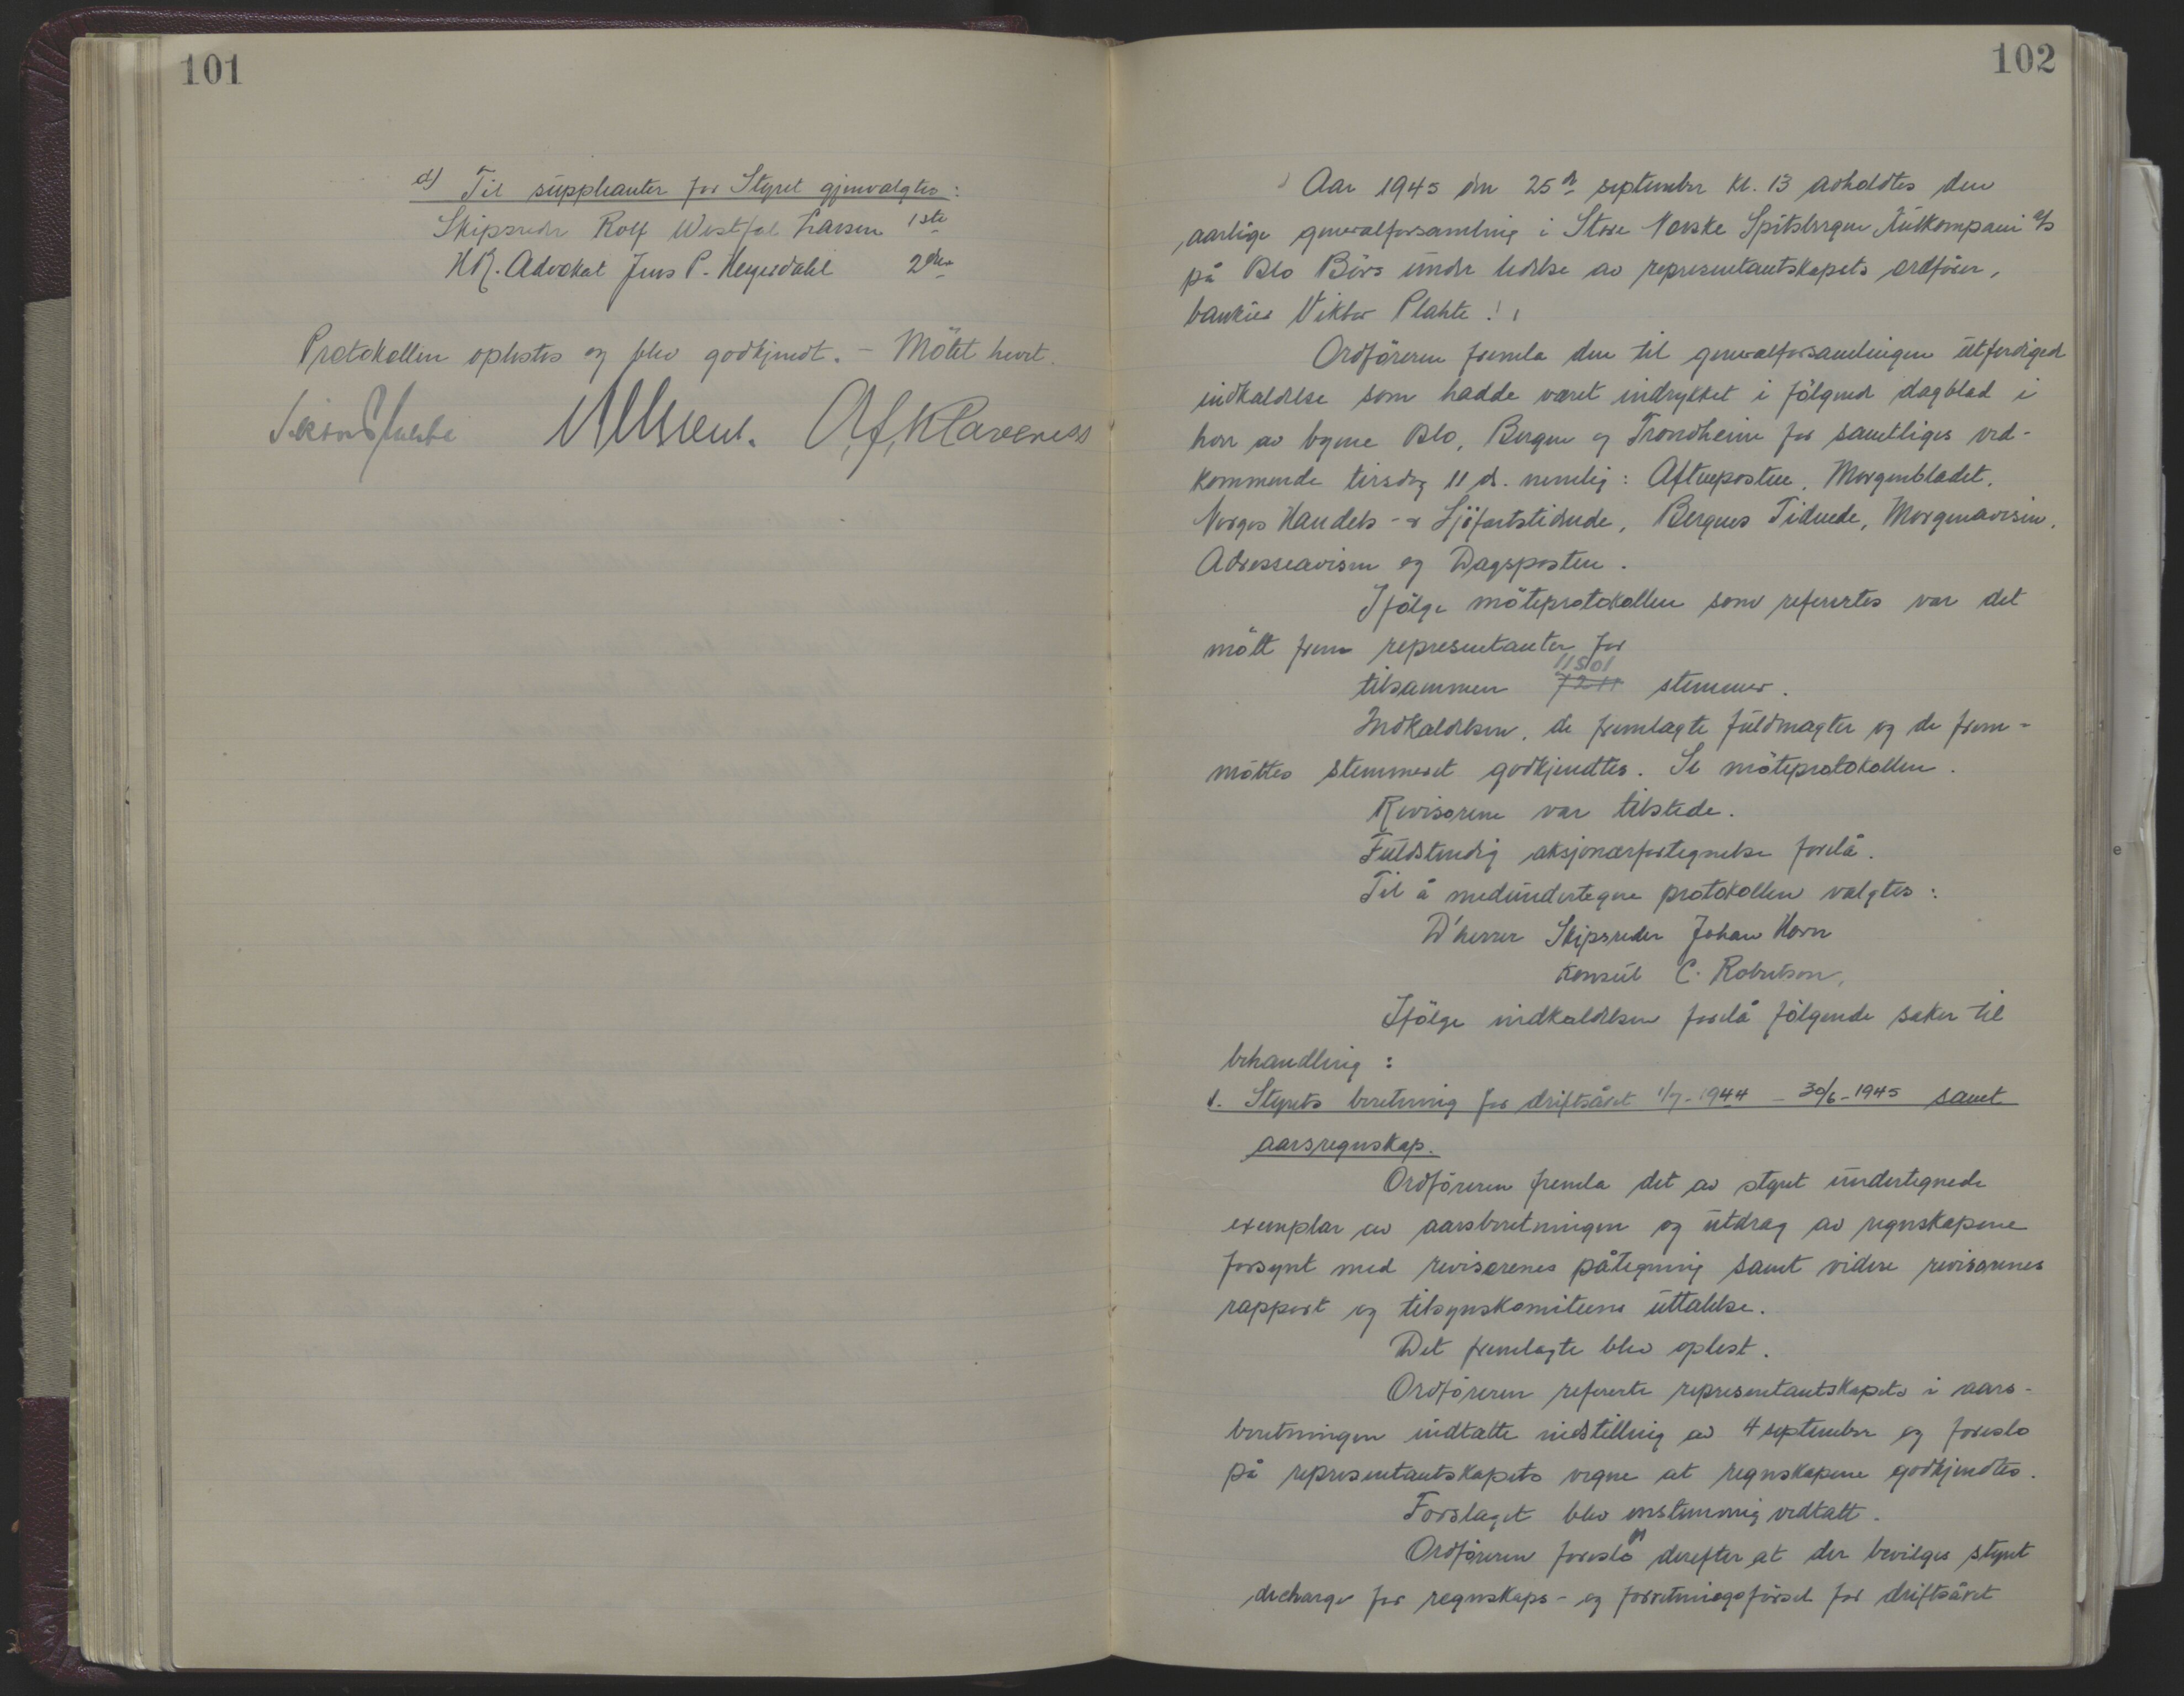 101
d) Til suppleanter for Styret gjenvalgtes:
Skipsreder Rolf Westfal Larsen 1ste
H.R. Advokat Jens P. Heyerdahl 2den
Protokollen oplestes og blev godkjendt. - Mötet hevet.
A.F. Klaveness
102
Aar 1945 den 25de september kl. 13 avholdtes den
aarlige generalforsamling i Store Norske Spitsbergen Kulkompani A/S
på Oslo Börs under ledelse av representantskapets ordförer,
bankier Viktor Plahte.
Ordföreren fremla den til generalforsamlingen utferdiged
indkaldelse som hadde været indrykket i fölgende dagblad i
hver av byene Oslo, Bergen og Trondheim for samtliges ved-
kommende tirsdag 11 ds. nemlig: Aftenposten, Morgenbladet,
Norges Handels- & Sjöfartstidende, Bergens Tidende, Morgenavisen,
Adresseavisen og Dagsposten.
Ifölge möteprotokollen som refertes var det
mött frem representanter for
tilsammen 11501 stemmer.
Indkaldelsen, de fremlagte fuldmagter og de frem-
möttes stemmeret godkjendtes. Se möteprotokollen.
Revisorene var tilstede.
Fuldstendig aksjonærfortegnelse forelå.
Til å medundertegne protokollen valgtes:
D'herrer Skipsreder Johan Horn
Konsul C. Robertson,
Ifölge indkaldelsen forelå fölgende saker til
behandling:
1. Styrets beretning for driftsåret 1/7-1944 - 30/6-1945 samt
aarsregnskap.
Ordföreren fremla det av styret undertegnede
exemplar av aarsberetningen og utdrag av regnskapene
forsynt med revisorenes påtegning samt videre revisorenes
rapport og tilsynskomiteens uttalelse.
Det fremlagte blev oplest.
Ordföreren refererte representantskapets i aars-
beretningen indtatte indstilling av 4 september og foreslo
på representantskapets vegne at regnskapene godkjendtes.
Forslaget blev enstemmig vedtatt.
Ordföreren foreslo derefter at der bevilges styret
decharge for regnskaps- og forretningsförsel for driftsåret